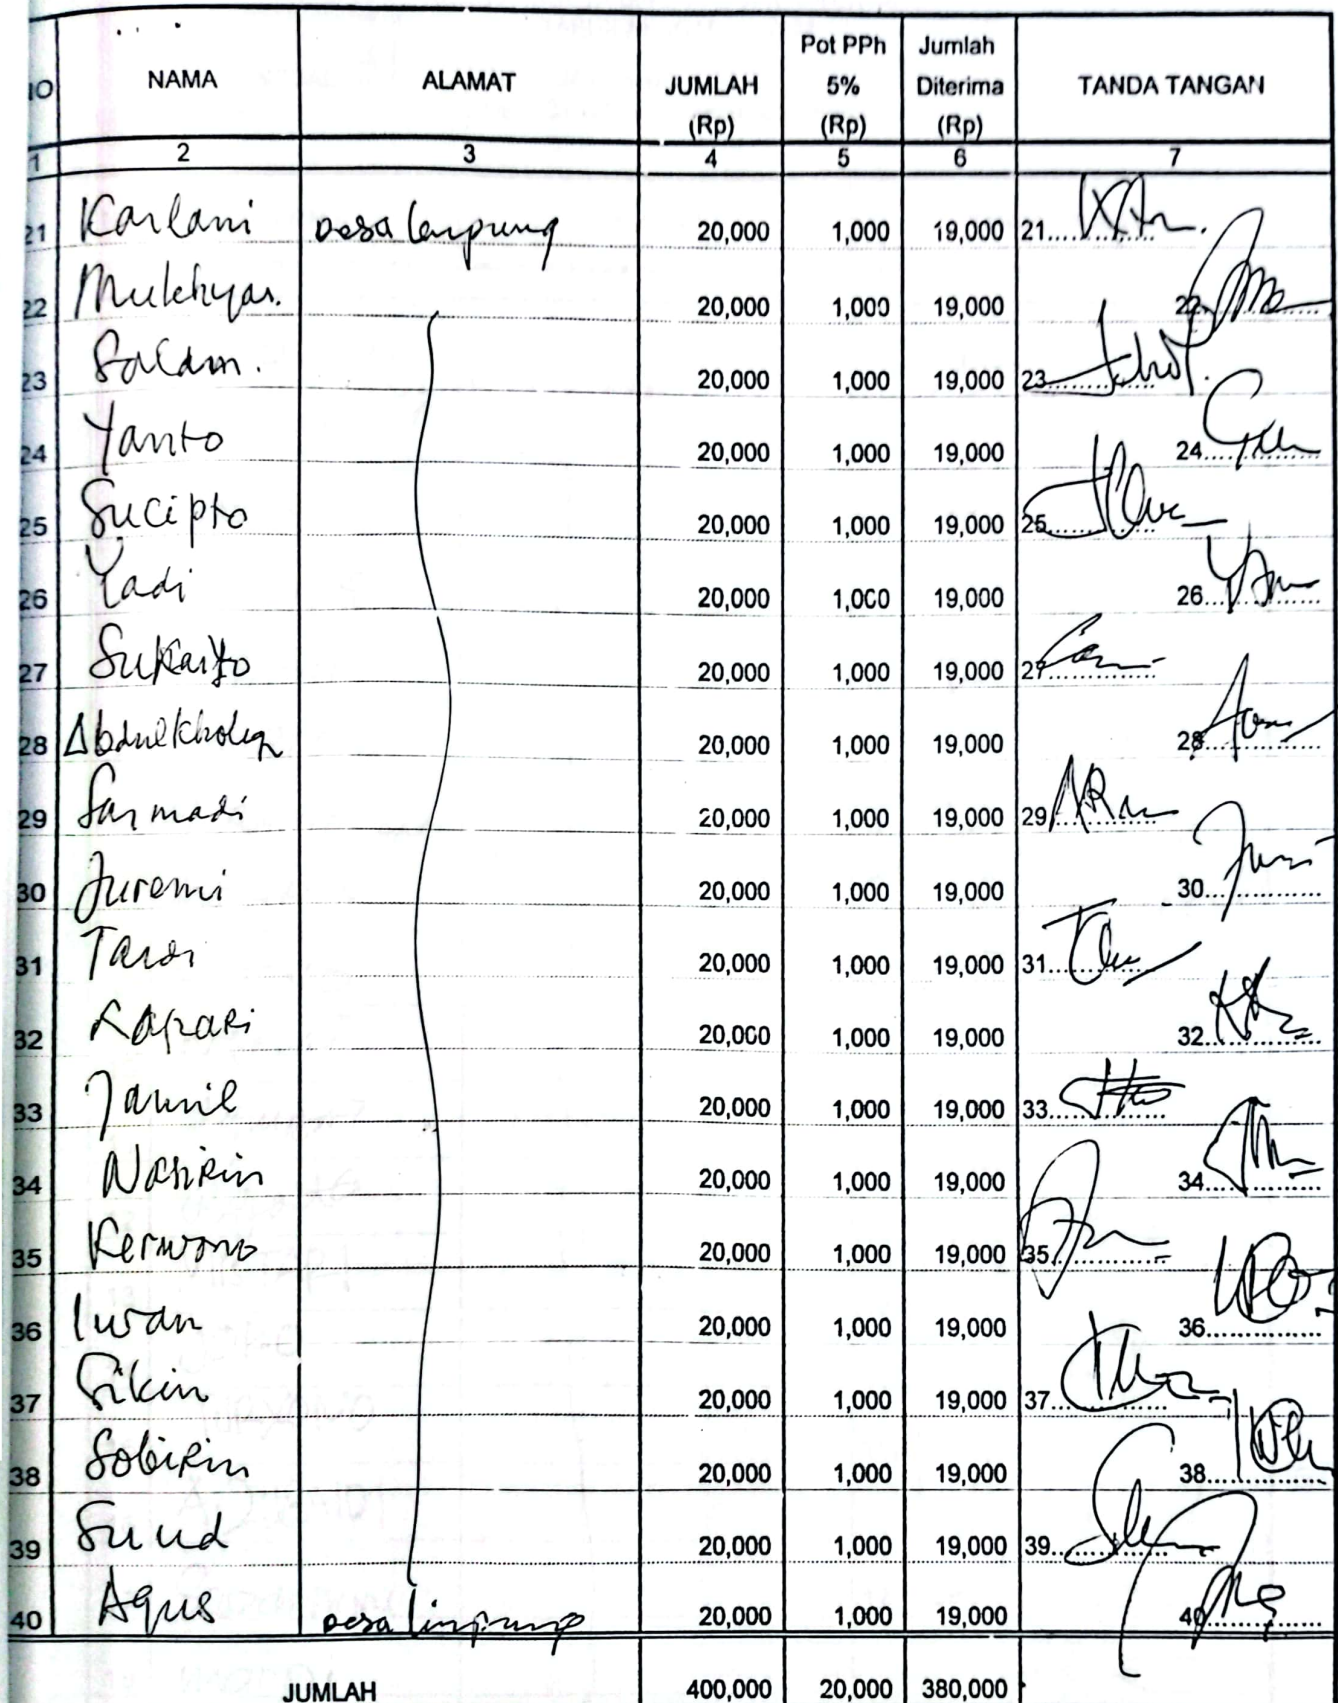 NO NAMA ALAMAT JUMLAH (Rp) Pot PPh 5% (Rp) Jumlah Diterima (Rp) TANDA TANGAN
1 2 3 4 5 6 7
21 Karlani Desa Limpung 20,000 1,000 19,000 21
22 Mukhyar. 20,000 1,000 19,000 22
23 Salam. 20,000 1,000 19,000 23
24 Yanto 20,000 1,000 19,000 24
25 Sucipto 20,000 1,000 19,000 25
26 Yadi 20,000 1,000 19,000 26
27 20,000 1,000 19,000 27
28 Abdul Kholiq 20,000 1,000 19,000 28
29 Sarmadi 20,000 1,000 19,000 29
30 Juremi 20,000 1,000 19,000 30
31 Tardi 20,000 1,000 19,000 31
32 20,000 1,000 19,000 32
33 Jamil 20,000 1,000 19,000 33
34 Nasirin 20,000 1,000 19,000 34
35 Kerwono 20,000 1,000 19,000 35
36 Iwan 20,000 1,000 19,000 36
37 Sikin 20,000 1,000 19,000 37
38 Sobirin 20,000 1,000 19,000 38
39 Suud 20,000 1,000 19,000 39
40 Agus Desa Limpung 20,000 1,000 19,000 40
JUMLAH 400,000 20,000 380,000